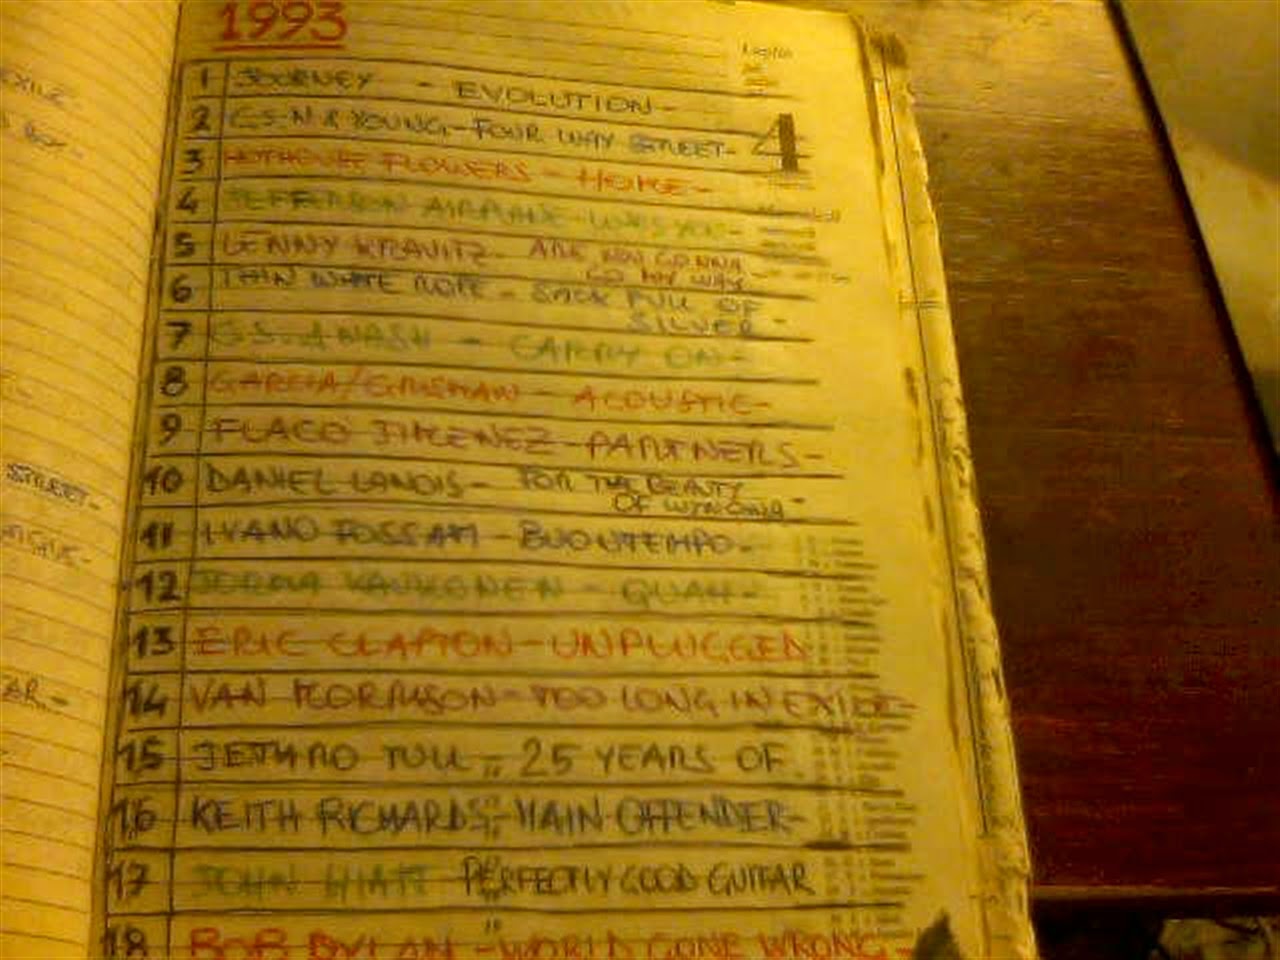 1993
1 JOURNEY - EVOLUTION -
2 C.S.N & YOUNG - FOUR WAY STREET -
4
3 HOTHOUSE FLOWERS - HOME -
4 JEFFERSON AIRPLANE -
5 LENNY KRAVITZ - ARE YOU GONNA
GO MY WAY -
6 THIN WHITE ROPE - SACK FULL OF
SILVER -
7 C.S. & NASH - CARRY ON -
8 GARCIA/GRISMAN - ACOUSTIC -
9 FLACO JIMENEZ - PARTNERS -
10 DANIEL LANOIS - FOR THE BEAUTY
OF WYNONA -
11 IVANO FOSSATI - BUONTEMPO -
12 JORMA KAUKONEN - QUAH -
13 ERIC CLAPTON - UNPLUGGED
14 VAN MORRISON - TOO LONG IN EXILE -
15 JETHRO TULL - 25 YEARS OF
16 KEITH RICHARDS - MAIN OFFENDER -
17 JOHN HIATT PERFECTLY GOOD GUITAR
18 BOB DYLAN - WORLD GONE WRONG -
STREET -
AR -